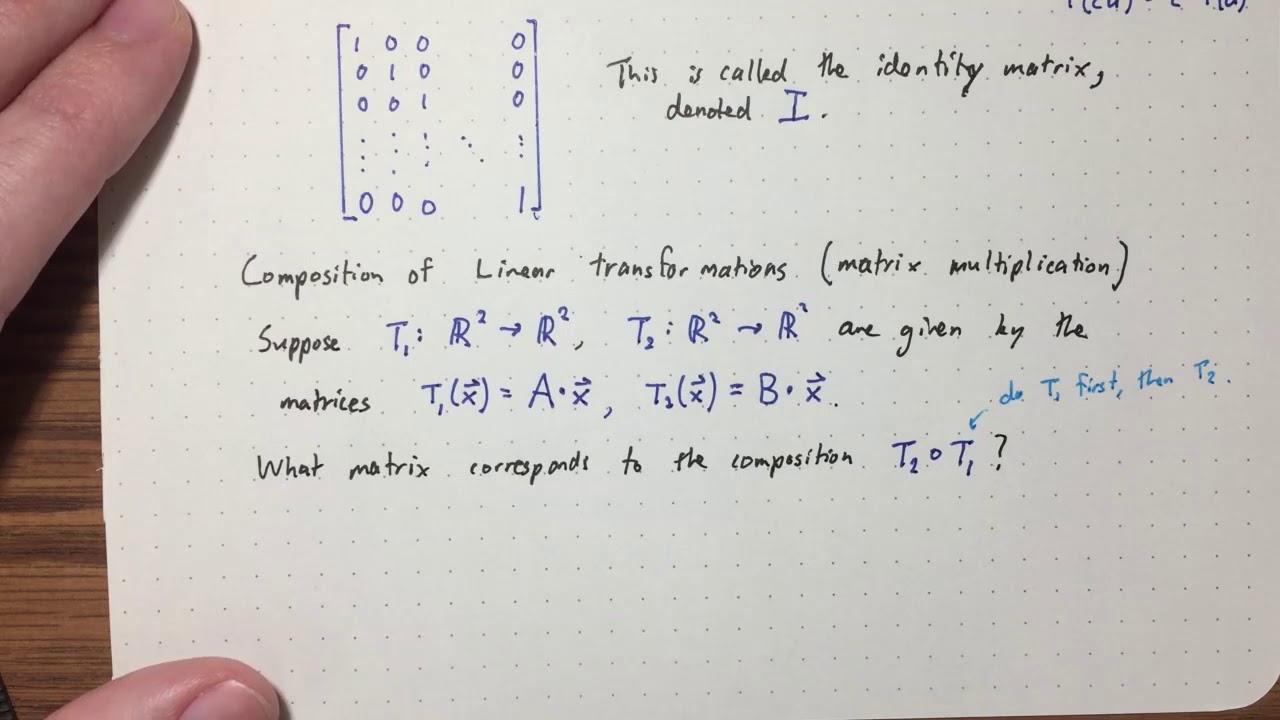 1 0 0 0
0 1 0 0
0 0 1 0
⋮ ⋮ ⋮ ⋱ ⋮
0 0 0 1
This is called the identity matrix,
denoted I.
Composition of Linear transformations (matrix multiplication)
Suppose T₁: ℝ² → ℝ², T₂: ℝ² → ℝ² are given by the
matrices T₁(x⃗) = A·x⃗, T₂(x⃗) = B·x⃗.
do T₁ first, then T₂.
What matrix corresponds to the composition T₂∘T₁?